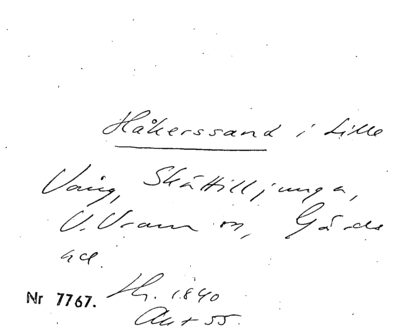 Håkerssand i Lille
Väng, Skättilljunga,
V. Vram sn, Gärds
hd.
Nr 7767. Hr. 1840
Akt 55.